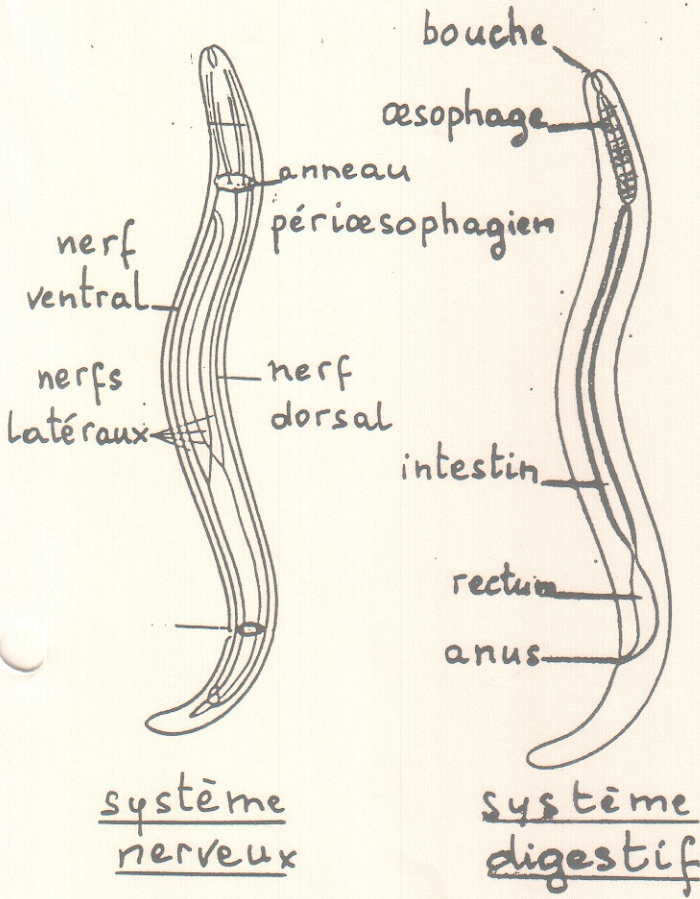 anneau
périœsophagien
nerf
ventral
nerfs
latéraux
nerf
dorsal
système
nerveux
bouche
œsophage
intestin
rectum
anus
système
digestif